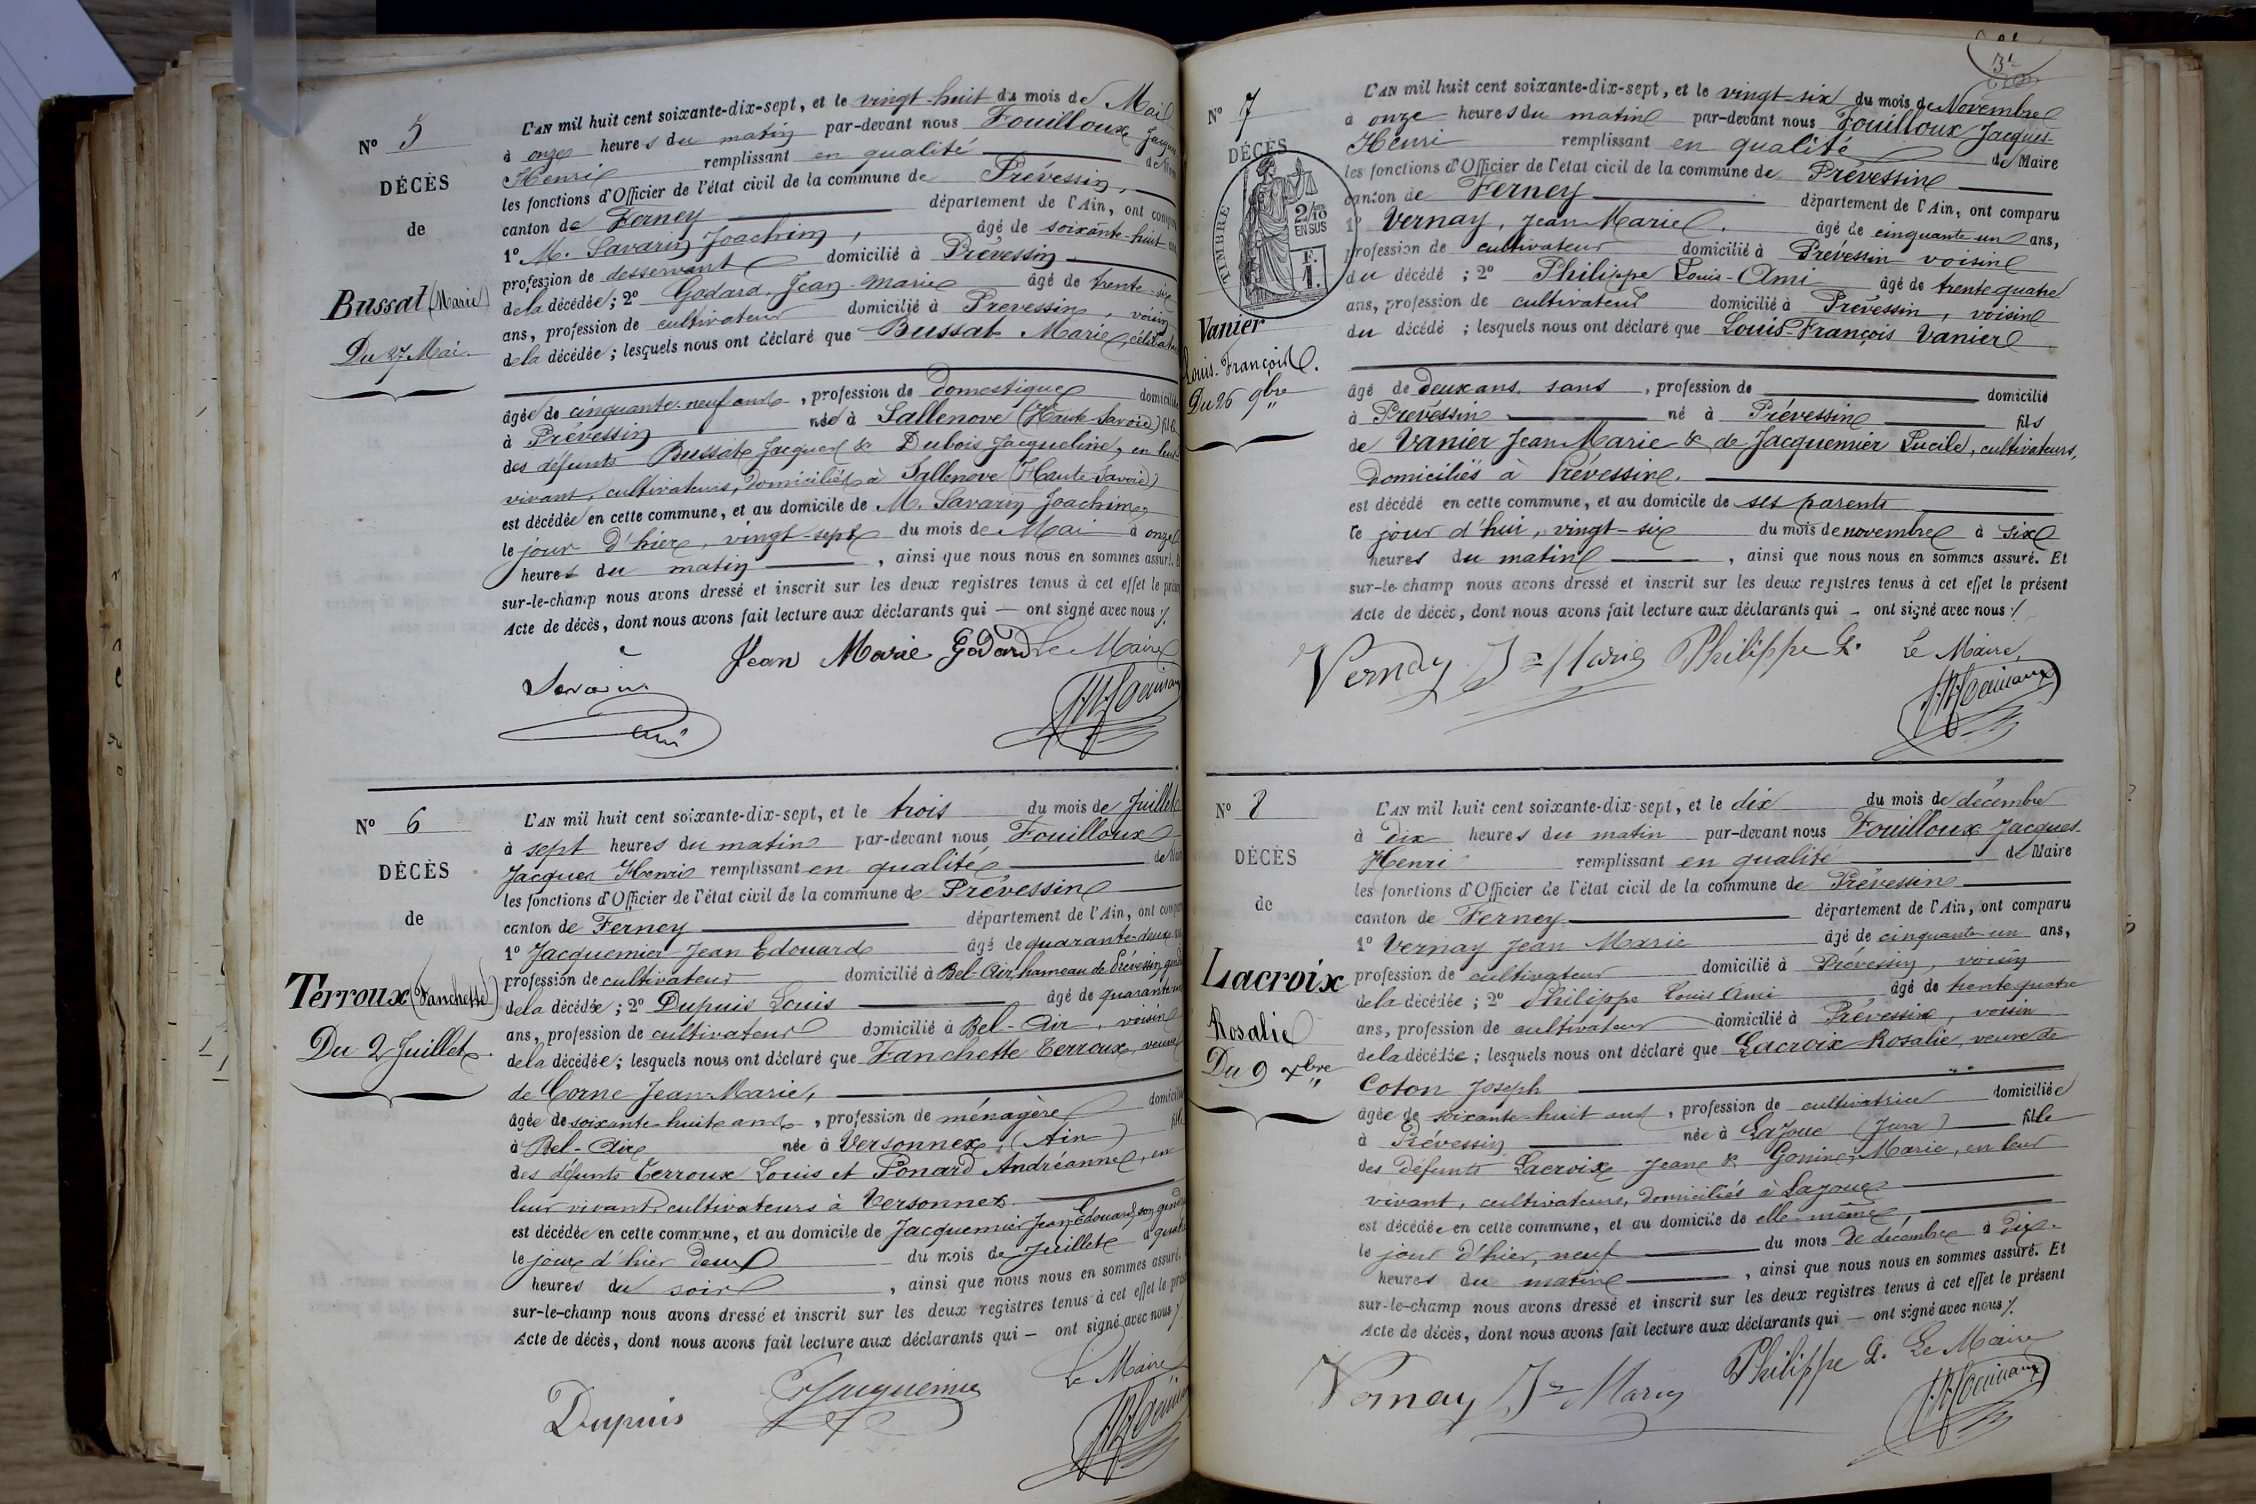 N° 5
DÉCÈS
de
Bussat (Marie)
Du 27 Mai.
L'AN mil huit cent soixante-dix-sept, et le vingt-huit du mois de Mai
à onze heures du matin par-devant nous Fouilloux Jacques
Henri remplissant en qualité de
les fonctions d'Officier de l'état civil de la commune de Prévessin,
canton de Ferney département de l'Ain, ont
1° M. Savarin Joachim, âgé de soixante-huit
profession de desservant domicilié à Prévessin
de la décédée; 2° Godard Jean-Marie âgé de trente-six
ans, profession de cultivateur domicilié à Prévessin, voisin
de la décédée; lesquels nous ont déclaré que Bussat Marie,
âgée de cinquante-neuf ans, profession de domestique
à Prévessin née à Sallenove (Haute Savoie)
des défunts Bussat Jacques & Dubois Jacqueline, en leur
vivant, cultivateurs, domiciliés à Sallenove (Haute Savoie)
est décédée en cette commune, et au domicile de M. Savarin Joachim
le jour d'hier, vingt-sept du mois de Mai à onze
heures du matin, ainsi que nous nous en sommes assuré.
sur-le-champ nous avons dressé et inscrit sur les deux registres tenus à cet effet le
Acte de décès, dont nous avons fait lecture aux déclarants qui — ont signé avec nous ./.
Jean Marie Godard Le Maire
Savarin
N° 6
DÉCÈS
de
Terroux (Fanchette)
Du 2 Juillet.
L'AN mil huit cent soixante-dix-sept, et le trois du mois de Juillet
à sept heures du matin par-devant nous Fouilloux
Jacques Henri remplissant en qualité de
les fonctions d'Officier de l'état civil de la commune de Prévessin
canton de Ferney département de l'Ain, ont
1° Jacquemier Jean Edouard âgé de quarante-deux
profession de cultivateur domicilié à Bel-Air, hameau de Prévessin,
de la décédée; 2° Dupuis Louis âgé de
ans, profession de cultivateur domicilié à Bel-Air, voisin
de la décédée; lesquels nous ont déclaré que Fanchette Terroux, veuve
de Corne Jean-Marie,
âgée de soixante-huit ans, profession de ménagère
à Bel-Air née à Versonnex, (Ain)
des défunts Terroux Louis et Ponard Andréanne, en
leur vivant cultivateurs à Versonnex.
est décédée en cette commune, et au domicile de Jacquemier Jean Edouard, son gendre
le jour d'hier deux du mois de Juillet à
heures du soir, ainsi que nous nous en sommes assuré.
sur-le-champ nous avons dressé et inscrit sur les deux registres tenus à cet effet le
Acte de décès, dont nous avons fait lecture aux déclarants qui — ont signé avec nous ./.
Le Maire
Dupuis Jacquemier
N° 7
DÉCÈS
TIMBRE
2/10
EN SUS
F.
1.
Vanier
Louis-François.
Du 26 9bre
L'AN mil huit cent soixante-dix-sept, et le vingt-six du mois de Novembre
à onze heures du matin par-devant nous Fouilloux Jacques
Henri remplissant en qualité de Maire
les fonctions d'Officier de l'état civil de la commune de Prévessin
canton de Ferney département de l'Ain, ont comparu
1° Vernay, Jean Marie, âgé de cinquante un ans,
profession de cultivateur domicilié à Prévessin voisin
du décédé; 2° Philippe Louis-Ami âgé de trente quatre
ans, profession de cultivateur domicilié à Prévessin, voisin
du décédé; lesquels nous ont déclaré que Louis-François Vanier
âgé de deux ans, sans, profession de domicilié
à Prévessin né à Prévessin fils
de Vanier Jean Marie & de Jacquemier Lucile, cultivateurs,
domiciliés à Prévessin.
est décédé en cette commune, et au domicile de ses parents
le jour d'hui, vingt-six du mois de novembre à six
heures du matin, ainsi que nous nous en sommes assuré. Et
sur-le-champ nous avons dressé et inscrit sur les deux registres tenus à cet effet le présent
Acte de décès, dont nous avons fait lecture aux déclarants qui - ont signé avec nous ./.
Vernay Jn Marie Philippe L. Le Maire,
N° 8
DÉCÈS
de
Lacroix
Rosalie
Du 9 Xbre
L'AN mil huit cent soixante-dix-sept, et le dix du mois de décembre
à dix heures du matin par-devant nous Fouilloux Jacques
Henri remplissant en qualité de Maire
les fonctions d'Officier de l'état civil de la commune de Prévessin
canton de Ferney département de l'Ain, ont comparu
1° Vernay Jean Marie âgé de cinquante-un ans,
profession de cultivateur domicilié à Prévessin, voisin
de la décédée; 2° Philippe Louis Ami âgé de trente quatre
ans, profession de cultivateur domicilié à Prévessin, voisin
de la décédée; lesquels nous ont déclaré que Lacroix Rosalie, veuve de
Coton Joseph
âgée de soixante-huit ans, profession de cultivatrice domiciliée
à Prévessin née à Lajoue (Jura) fille
des défunts Lacroix Jean & Gonin, Marie, en leur
vivant, cultivateurs, domiciliés à Lajoue
est décédée en cette commune, et au domicile de elle-même,
le jour d'hier, neuf du mois de décembre à dix
heures du matin, ainsi que nous nous en sommes assuré. Et
sur-le-champ nous avons dressé et inscrit sur les deux registres tenus à cet effet le présent
Acte de décès, dont nous avons fait lecture aux déclarants qui — ont signé avec nous ./.
Vernay Jn Marie Philippe L. Le Maire